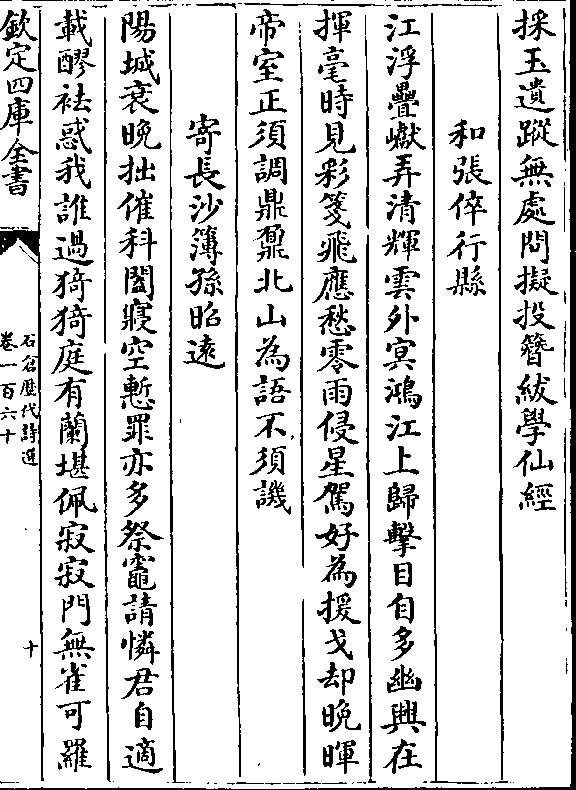 採玉遺蹤無處問擬投簪紱學仙經
和張倅行縣
江浮疊巘弄清輝雲外㝠鴻江上歸擊目自多幽興在
揮毫時見彩箋飛應愁零雨侵星駕好為援戈却晚暉
帝室正須調鼎鼐北山為語不須譏
寄長沙簿孫昭遠
陽城衰晚拙催科闔寢空慙罪亦多祭竈請憐君自適
載醪袪惑我誰過猗猗庭有蘭堪佩寂寂門無雀可羅
欽定四庫全書
石倉歴代詩選
卷一百六十
十